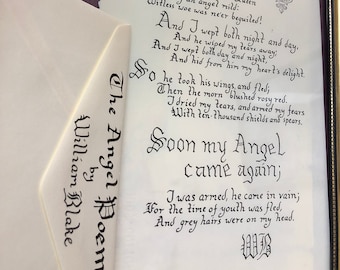 an angel mild:
Witless woe was ne'er beguiled!
And I wept both night and day,
And he wiped my tears away;
And I wept both day and night,
And hid from him my heart's delight.
So he took his wings, and fled;
Then the morn blushed rosy red.
I dried my tears, and armed my fears
With ten thousand shields and spears.
Soon my Angel
came again;
I was armed, he came in vain;
For the time of youth was fled,
And grey hairs were on my head.
WB
The Angel Poem
by
William Blake